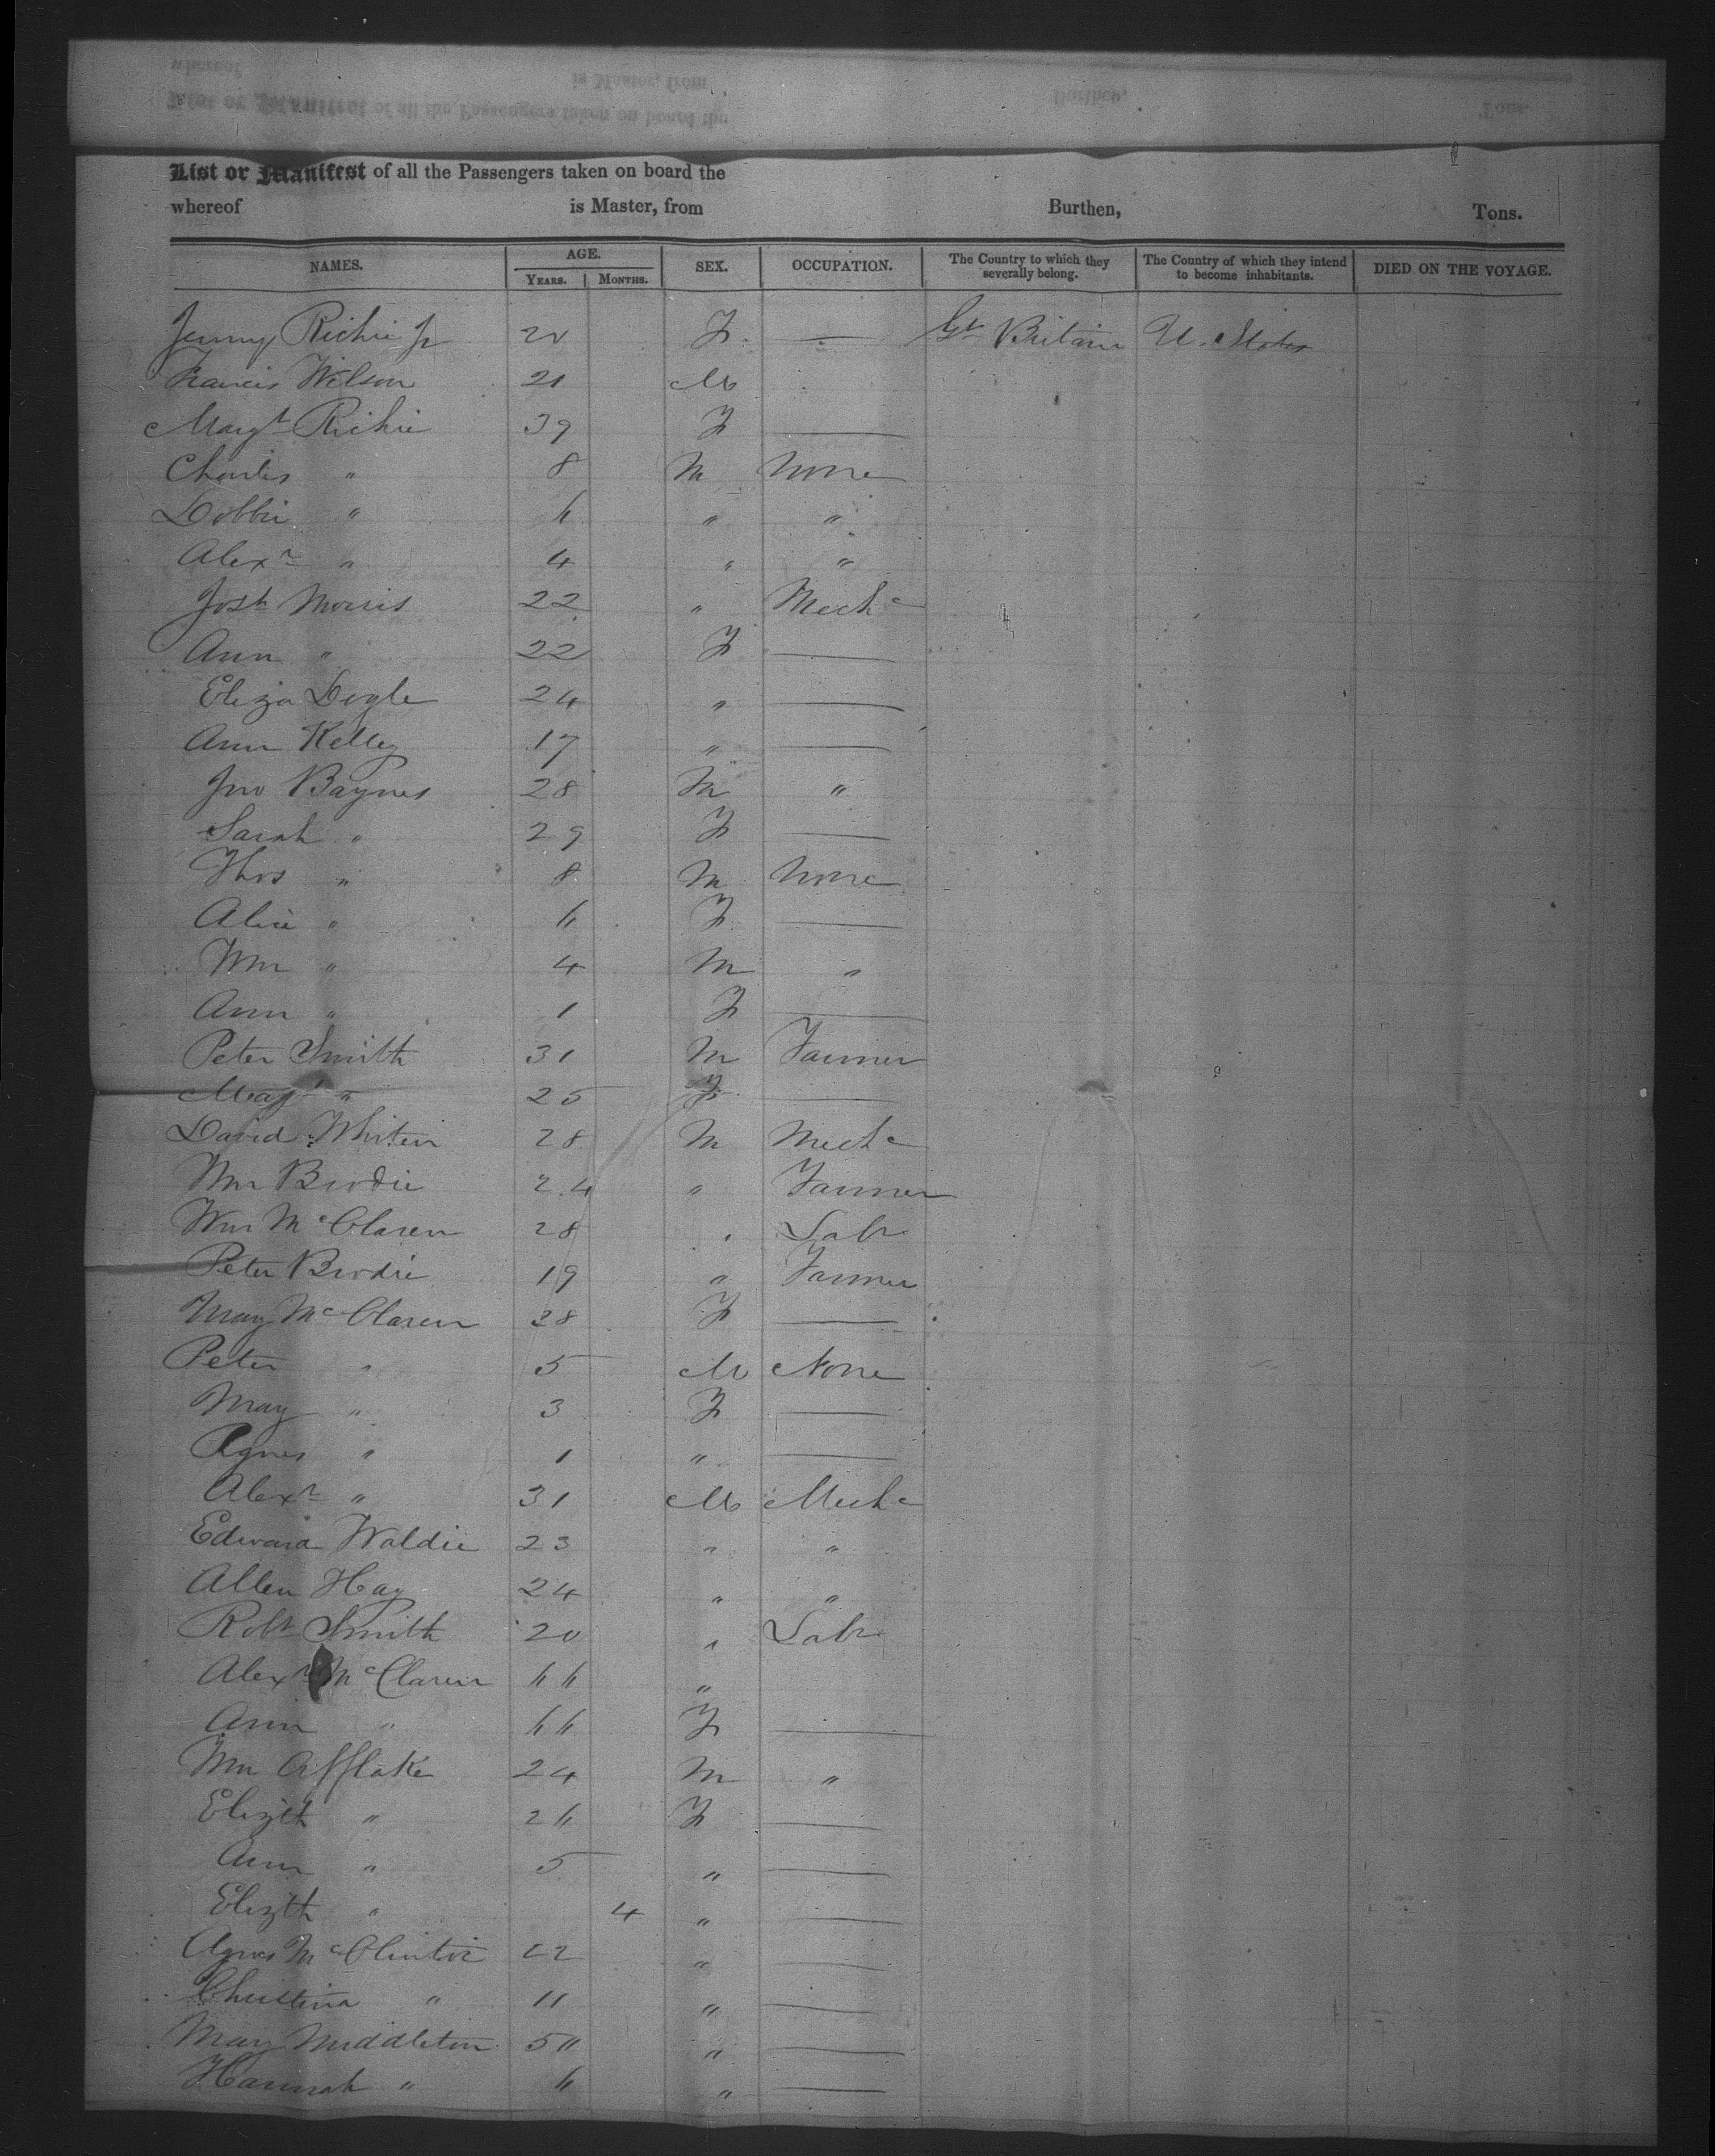 List or Manifest of all the Passengers taken on board the
whereof is Master, from Burthen, Tons.
NAMES. AGE. SEX. OCCUPATION. The Country to which they severally belong. The Country of which they intend to become inhabitants. DIED ON THE VOYAGE.
YEARS. MONTHS.
Jenny Richie Jr 20 F — Gt Britain U. States
Francis Wilson 21 M
Margt Richie 39 F —
Charles " 8 M None
Dobbie " 6 " "
Alexr " 4 " "
Josh Morris 22 " Mechc
Ann " 22 F —
Eliza Dogle 24 " —
Ann Kelley 17 " —
Jno Baynes 28 M "
Sarah " 29 F —
Thos " 8 M None
Alice " 6 F —
Wm " 4 M "
Ann " 1 F —
Peter Smith 31 M Farmer
Magt " 25 F —
David Whitein 28 M Mechc
Wm Brodie 24 " Farmer
Wm McClaren 28 " Labr
Peter Brodie 19 " Farmer
May McClaren 28 F —
Peter " 5 M None
May " 3 F —
Agnes " 1 " —
Alexr " 31 M Mechc
Edward Waldie 23 " "
Allen Hay 24 " "
Robt Smith 20 " Labr
Alexr McClaren 66 "
Ann " 66 F —
Wm Afflake 24 M "
Elizth " 26 F —
Ann " 5 " —
Elizth " 4 " —
Agnes McClintoc 22 " —
Christina " 11 " —
May Middleton 50 " —
Hannah " 6 " —